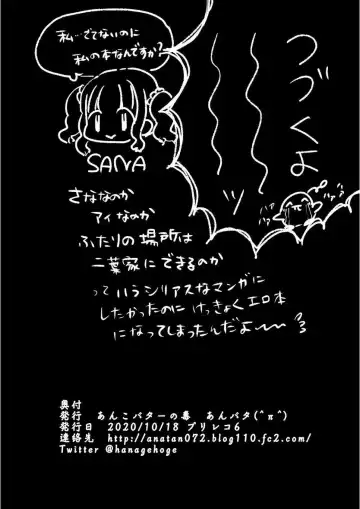 私…さてないのに
私の本なんですか?
SANA
つづくよ
ッ
ハァハァ
ハァ
さななのか
アイなのか
ふたりの場所は
二葉家にできるのか
っていうシリアスなマンガに
したかったのにけっきょくエロ本
になってしまったんだよ〜〜
奥付
発行 あんこバターの毒 あんバタ(^π^)
発行日 2020/10/18 プリレコ6
連絡先 http://anatan072.blog110.fc2.com/
Twitter @hanagehoge